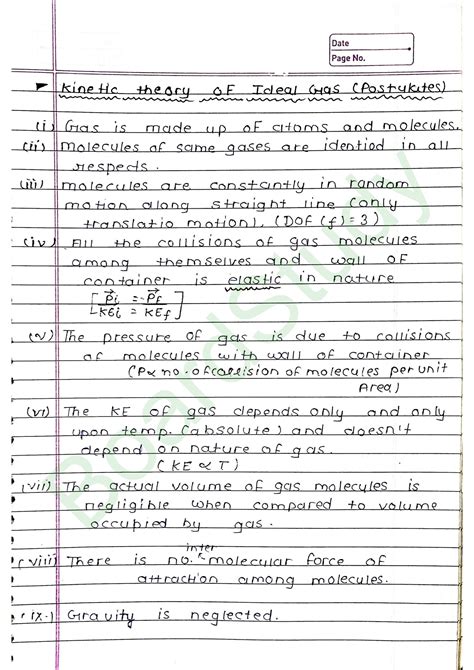 Date
Page No.
Kinetic theory of Ideal Gas (Postulates)
(i) Gas is made up of atoms and molecules.
(ii) molecules of same gases are identiod in all
respeds.
(iii) molecules are constantly in random
motion along straight line (only
translatio motion). (DOF (f) = 3)
(iv) All the collisions of gas molecules
among themselves and wall of
container is elastic in nature
[P⃗i = -P⃗f
KEi = KEf]
(v) The pressure of gas is due to collisions
of molecules with wall of container
(P∝ no. of collision of molecules per unit
Area)
(vi) The KE of gas depends only and only
upon temp. (absolute) and doesn't
depend on nature of gas.
(KE ∝ T)
(vii) The actual volume of gas molecules is
negligible when compared to volume
occupied by gas.
(viii) There is no. inter molecular force of
attraction among molecules.
(ix.) Gravity is neglected.
BoardStudy